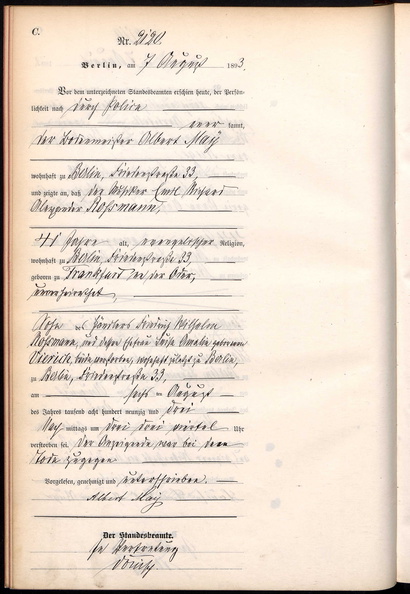 C.
Nr. 2120.
Berlin, am 7 August 1893.
Vor dem unterzeichneten Standesbeamten erschien heute, der Persön-
lichkeit nach durch Police
aner kannt,
der Bodenmeister Albert May
wohnhaft zu Berlin, Friedenstraße 33,
und zeigte an, daß der Emil Richard
Alexander Roßmann,
41 Jahre alt, evangelischer Religion,
wohnhaft zu Berlin, Friedenstraße 33,
geboren zu Frankfurt an der Oder,
unverheirathet,
Sohn des Händlers Friedrich Wilhelm
Roßmann, und dessen Ehefrau Luise Amalie geborenen
beide verstorben, wohnhaft zuletzt zu Berlin,
zu Berlin, Friedenstraße 33,
am sechs ten August
des Jahres tausend acht hundert neunzig und drei
Nach mittags um drei drei viertel Uhr
verstorben sei. Der Anzeigende war bei dem
Tode zugegen
Vorgelesen, genehmigt und unterschrieben.
Albert May
Der Standesbeamte.
In Vertretung